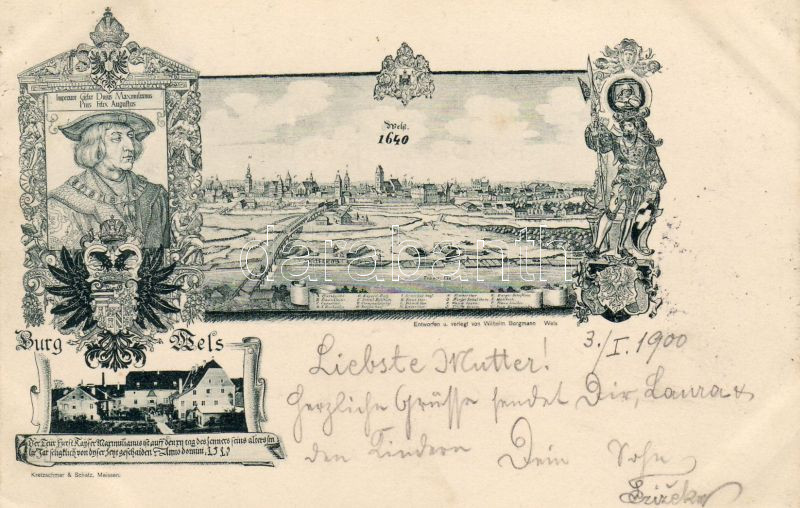 Imperator Cæsar Divus Maximilianus
Pius Felix Augustus
Wels.
1640
Entworfen u. verlegt von Wilhelm Borgmann Wels
Burg Wels
3./I. 1900
Liebste Mutter!
Herzliche Grüsse sendet Dir, Laura &
den Kindern Dein Sohn
darabanth
Der Teur Fürst Kayser Maximilianus ist auff den xij tag des Jenners seins alters im
lix Jar seligklich von dyser zeyt geschaiden Anno domini 1519
Kretzschmar & Schatz, Meissen.